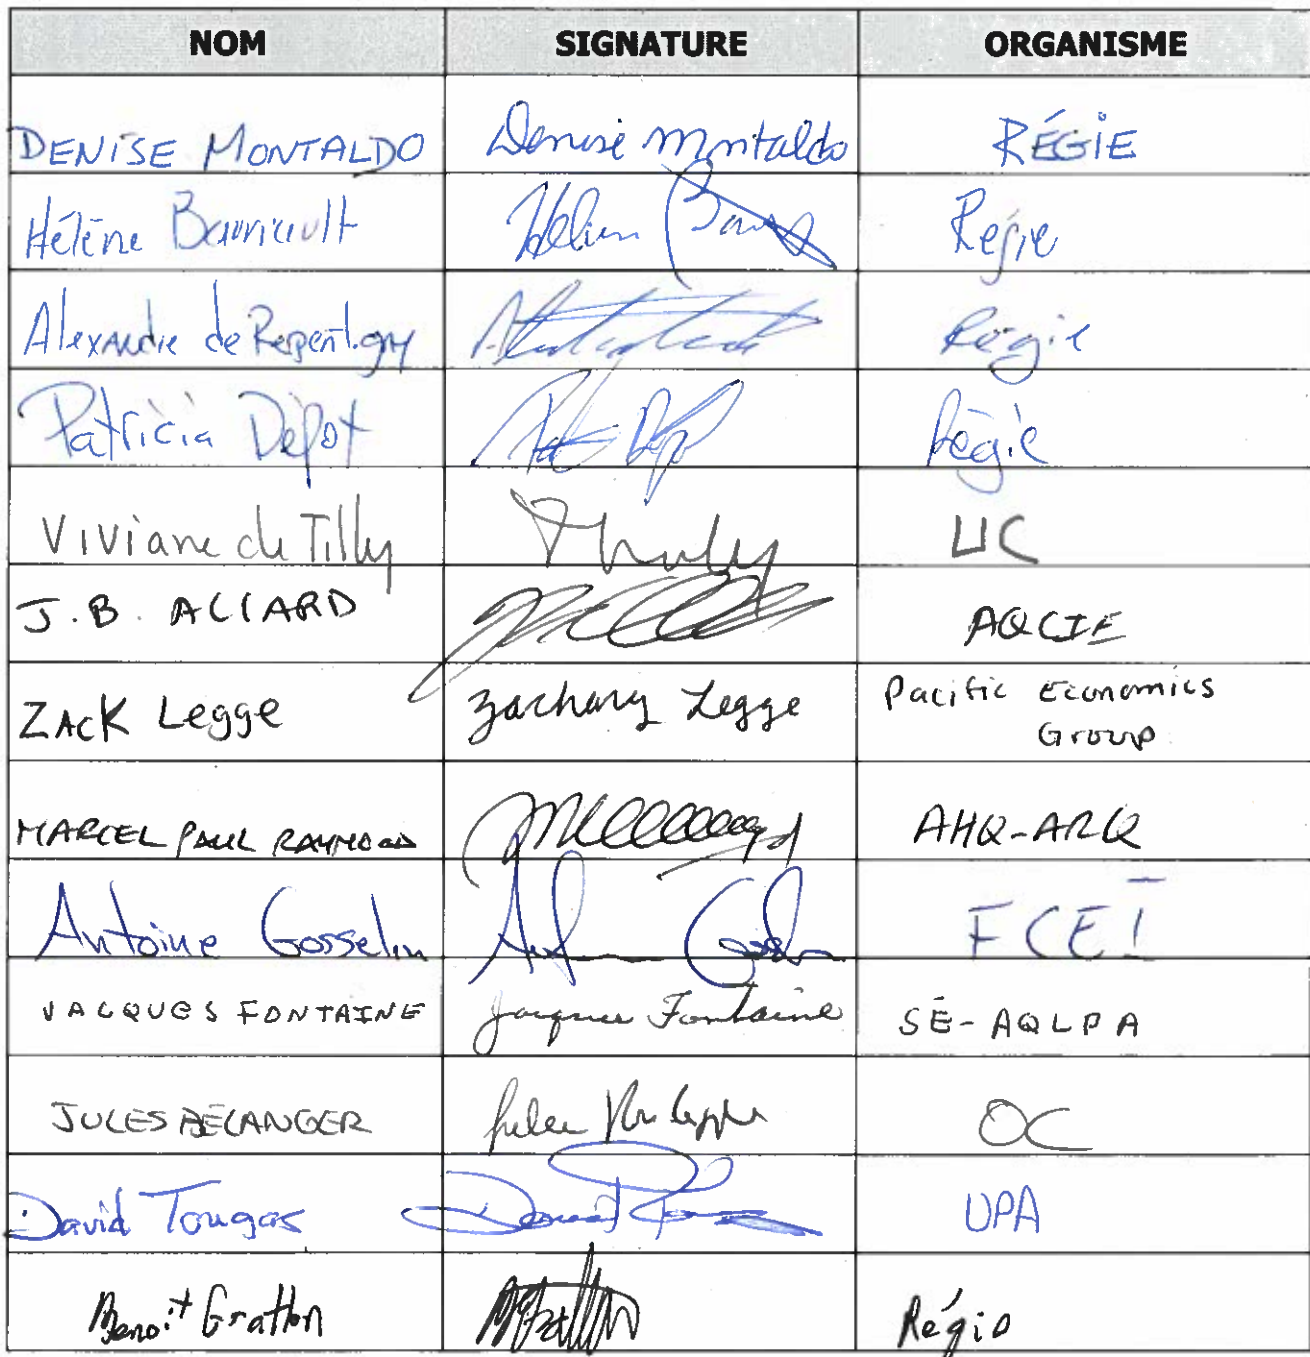 NOM SIGNATURE ORGANISME
DENISE MONTALDO Denise Montaldo RÉGIE
Hélène Barriault Régie
Alexandre de Repentigny Régie
Patricia Dépot Régie
Viviane de Tilly UC
J.B. ALLARD AQCIE
ZACK Legge Zachary Legge Pacific Economics
Group
MARCEL PAUL RAYMOND AHQ-ARQ
Antoine Gosselin FCEI
JACQUES FONTAINE Jacques Fontaine SÉ-AQLPA
JULES BÉLANGER OC
David Tougas UPA
Benoit Gratton Régie